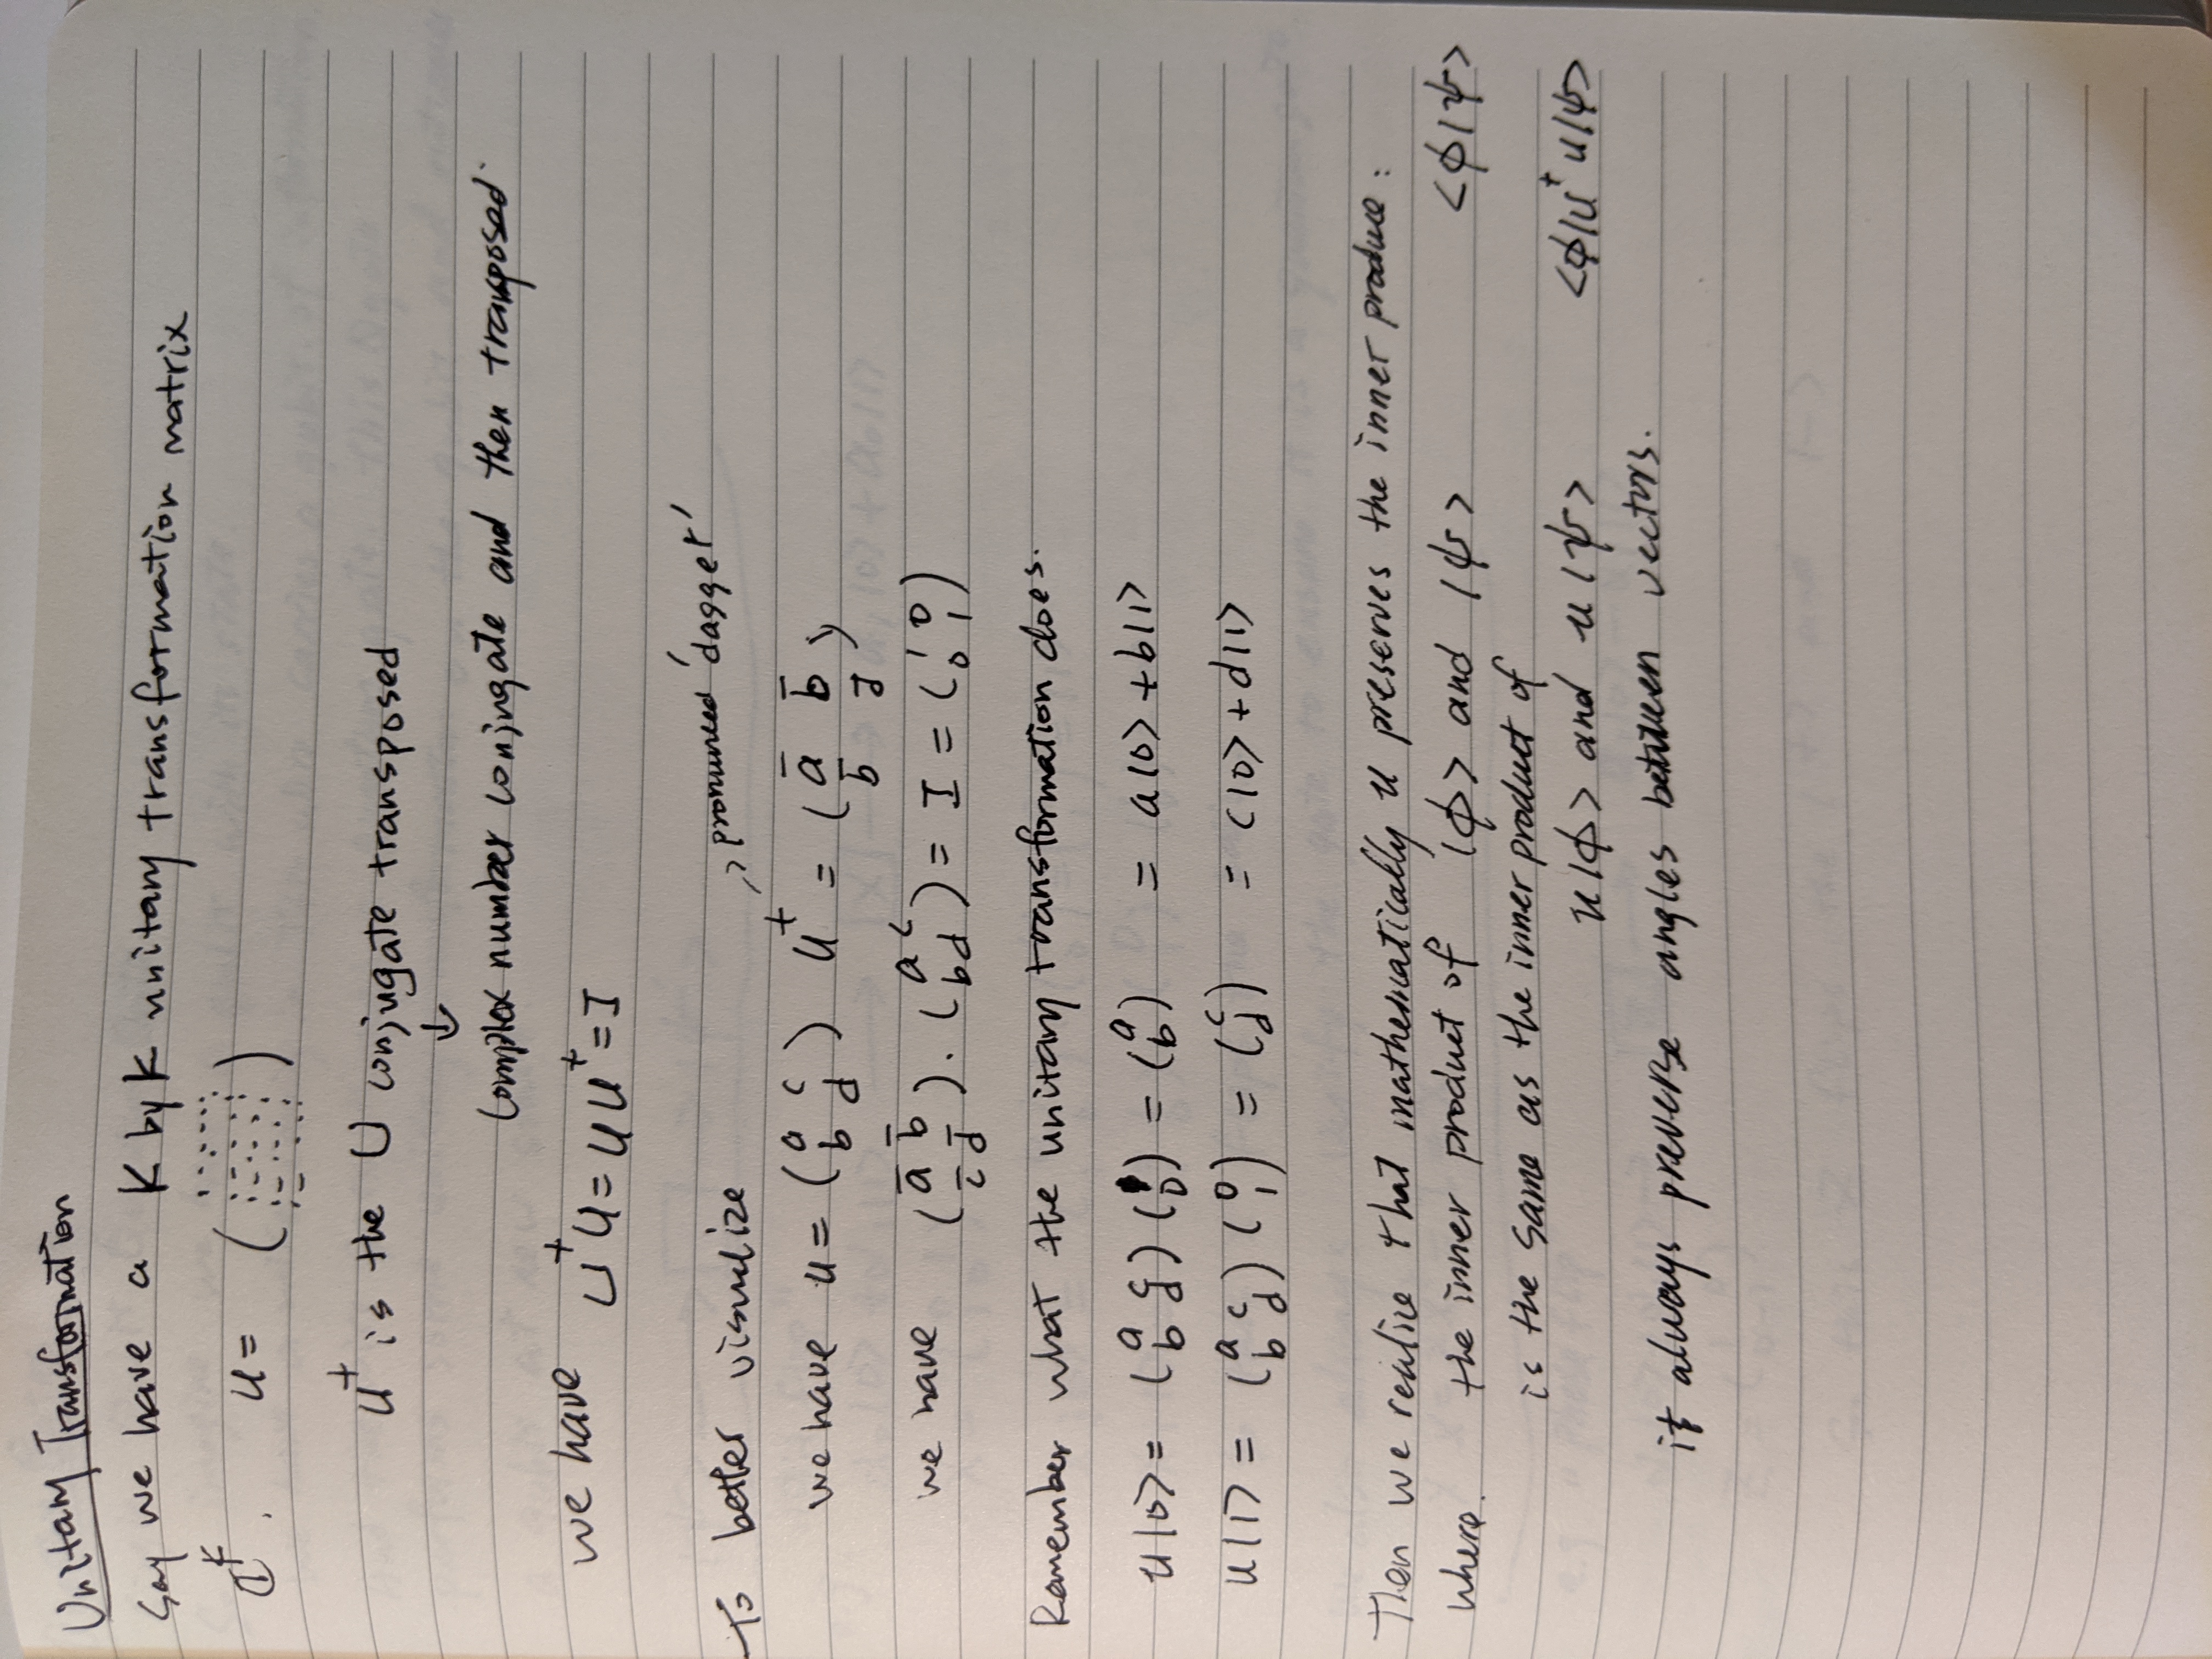 Unitary Transformation
Say we have a K by K unitary transformation matrix
ℂ^K. U = ( )
U† is the U conjugate transposed
↓
Complex number conjugate and then transposed.
we have U†U = UU† = I
To better visualize → pronunced 'dagget'
we have U = (a c / b d) U† = (a̅ b̅ / b̅ d̅)
we have (a̅ b̅ / c̅ d̅) · (a c / b d) = I = (1 0 / 0 1)
Remember what the unitary transformation does.
U|0> = (a c / b d) (1 / 0) = (a / b) = a|0> + b|1>
U|1> = (a c / b d) (0 / 1) = (c / d) = c|0> + d|1>
Then we realize that mathematically U preserves the inner produce :
where. the inner product of |ϕ> and |ψ> <ϕ|ψ>
is the same as the inner product of
U|ϕ> and U|ψ> <ϕ|U† U|ψ>
it always preverse angles between vectors.